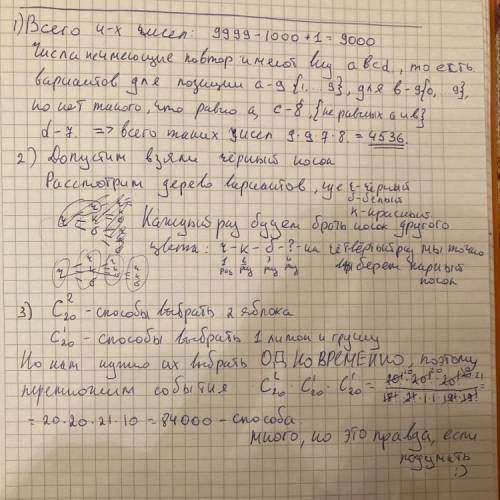 1) Всего 4-х чисел: 9999-1000+1=9000
Числа неимеющие повтор имеют вид abcd, то есть
вариантов для позиции a-9{1,...9}, для b-9{0, 9},
но нет такого, что равно a, c-8, {не равных a и b}
d-7 => всего таких чисел 9·9·7·8=4536.
2) Допустим взяли чёрный носок
Рассмотрим дерево вариантов, где ч-чёрный
б-белый
к-красный.
Каждый раз будем брать носок другого
цвета: ч-к-б-?-на четвёртый раз мы точно
1 раз 2 раз 3 раз 4 раз
выберем парный
носок
3) C²₂₀ - способы выбрать 2 яблока
C¹₂₀ - способы выбрать 1 лимон и грушу
Но нам нужно их выбрать ОДНОВРЕМЕННО, поэтому
перемножим события C²₂₀ · C¹₂₀ · C¹₂₀ =
= 20·20·21·10 = 84000 - способа.
много, но это правда, если
подумать
:)